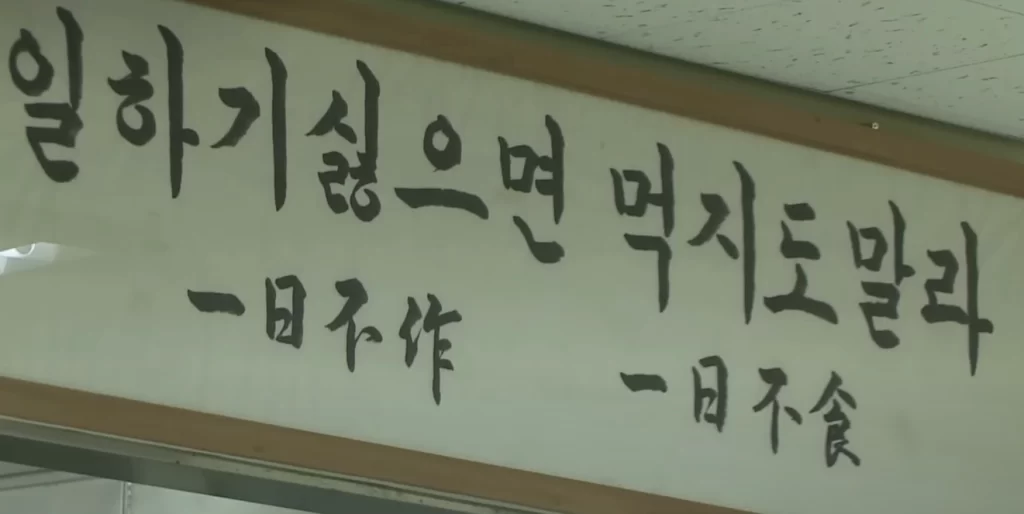 일하기싫으면 먹지도말라
一日不作 一日不食